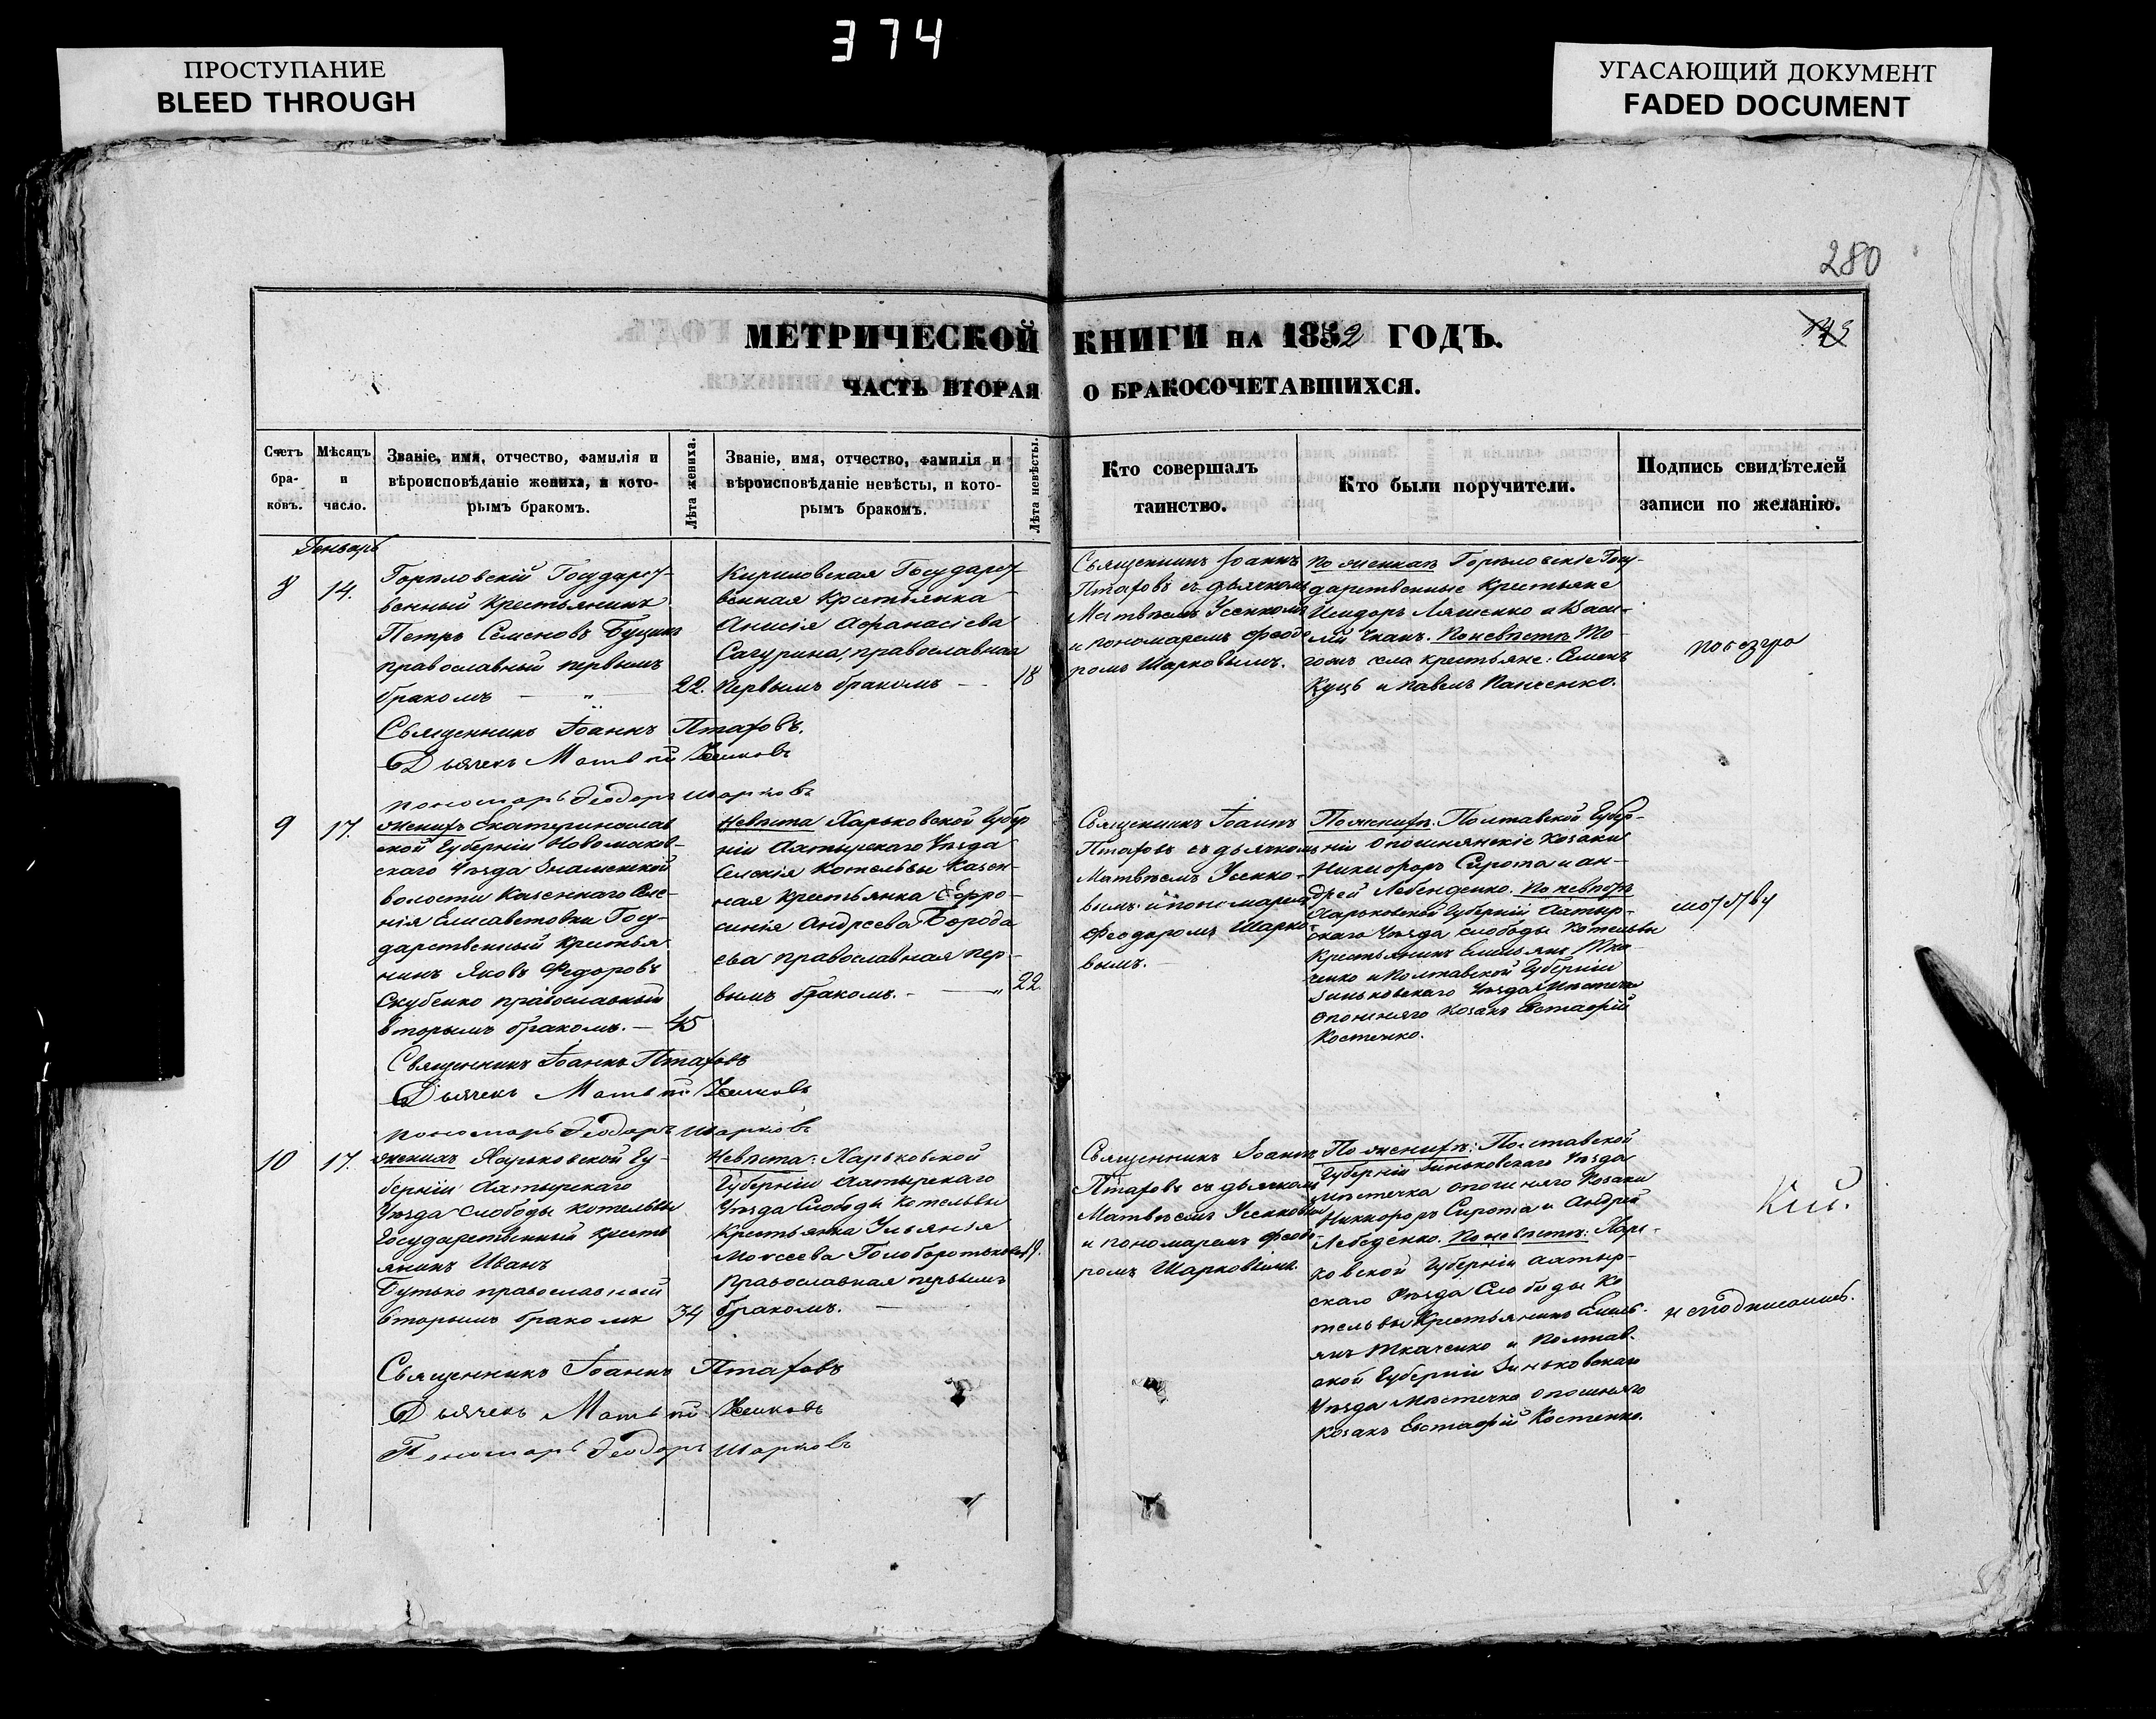 374
ПРОСТУПАНИЕ
BLEED THROUGH
УГАСАЮЩИЙ ДОКУМЕНТ
FADED DOCUMENT
280
МЕТРИЧЕСКОЙ КНИГИ НА 1852 ГОДЪ.
ЧАСТЬ ВТОРАЯ О БРАКОСОЧЕТАВШИХСЯ.
Счетъ бра-ковъ.
Мѣсяцъ и число.
Званіе, имя, отчество, фамилія и
вѣроисповѣданіе жениха, и кото-
рымъ бракомъ.
Лѣта жениха.
Званіе, имя, отчество, фамилія и
вѣроисповѣданіе невѣсты, и кото-
рымъ бракомъ.
Лѣта невѣсты.
Кто совершалъ
таинство.
Кто были поручители.
Подпись свидѣтелей
записи по желанію.
Генварь
8
14.
Горѣловскій Государст-
венный крестьянинъ
Петръ Семеновъ Буцикъ
православный первымъ
бракомъ — „ —
22.
Кириловская Государст-
венная крестьянка
Анисія Афанасіева
Сагурина, православная
первымъ бракомъ —
18
Священникъ Іоаннъ
Птаховъ съ дьячкомъ
Матвѣемъ Усенкомъ
и пономаремъ Феодо
ромъ Шарковымъ.
По жениханъ Горѣловскіе Госу-
дарственные крестьяне
Исидоръ Ляшенко и Васи-
лій Чканъ. По невѣстѣ То-
гожъ села крестьяне: Семенъ
Куцъ и Павелъ Панченко.
Священникъ Іоаннъ Птаховъ.
Дьячекъ Матвѣй Усенковъ
пономарь Феодоръ Шарковъ
9
17.
женихъ Екатеринослав
ской Губерніи Новомосков-
скаго Уѣзда Знаменской
волости казеннаго селе-
нія Елисаветовки Госу-
дарственный крестья
нинъ Яковъ Федоровъ
Скубенко православный
вторымъ бракомъ. —
45
Невѣста Харьковской Губер
ніи Ахтырскаго Уѣзда
Селенія Котельвы казен-
ная крестьянка Ефро-
синія Андреева Борода
ева православная пер-
вымъ бракомъ. — „
22.
Священникъ Іоаннъ
Птаховъ съ дьячкомъ
Матвѣемъ Усенко-
вымъ и пономаремъ
Феодоромъ Шарко-
вымъ. —
По женихѣ. Полтавской Губер-
ніи опошнянскіе козаки
Никифоръ Сирота и Ан-
дрей Лебеденко. По невѣстѣ
Харьковской Губерніи Ахтыр-
скаго Уѣзда слободы Котельвы
крестьянинъ Емельянъ Тка-
ченко и Полтавской Губерніи
Зиньковскаго Уѣзда Мѣстечка
Опошняго козакъ Евстафій
Костенко.
Священникъ Іоаннъ Птаховъ
Дьячекъ Матвѣй Усенковъ
пономарь Феодоръ Шарковъ
10
17.
женихъ Харьковской Гу-
берніи Ахтырскаго
Уѣзда Слободы Котельвы
Государственный кресть
янинъ Иванъ
Бутько православный
вторымъ бракомъ
34
Невѣста: Харьковской
Губерніи Ахтырскаго
Уѣзда Слободы Котельвы
Крестьянка Ульянія
Моѵсеева Голоборотькова
православная первымъ
бракомъ. —
19.
Священникъ Іоаннъ
Птаховъ съ дьячкомъ
Матвѣемъ Усенковым
и пономаремъ Феодо-
ромъ Шарковымъ.
По женихѣ: Полтавской
Губерніи Зиньковскаго Уѣзда
мѣстечка опошняго козаки
Никифоръ Сирота и Андрей
Лебеденко. По невѣстѣ: Харь-
ковской Губерніи Ахтыр-
скаго Уѣзда Слободы Ко
тельвы Крестьянинъ Емель-
янъ Ткаченко и Полтав-
ской Губерніи Зиньковскаго
Уѣзда Мѣстечка опошняго
козакъ Евстафій Костенко.
Священникъ Іоаннъ Птаховъ
Дьячекъ Матвѣй Усенковъ
Пономарь Феодоръ Шарковъ